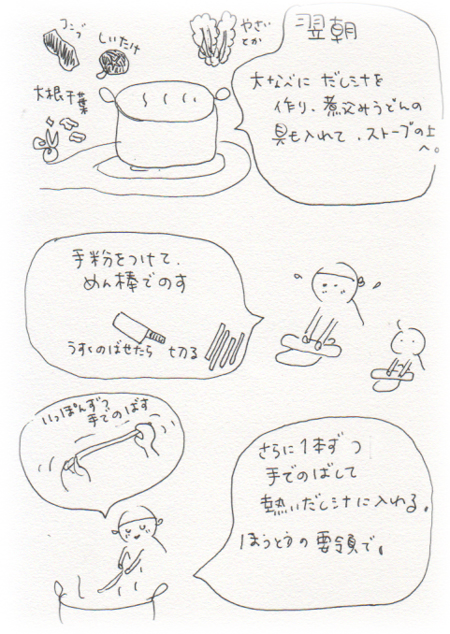 翌朝
こんぶ
しいたけ
やさい
とか
大根葉
大なべに だし汁を
作り、煮込みうどんの
具も入れて、ストーブの上
へ。
手粉をつけて、
めん棒でのす
うすくのばせたら 切る
いっぽんずつ
手でのばす
さらに1本ずつ
手でのばして
熱いだし汁に入れる。
ほうとうの要領で。